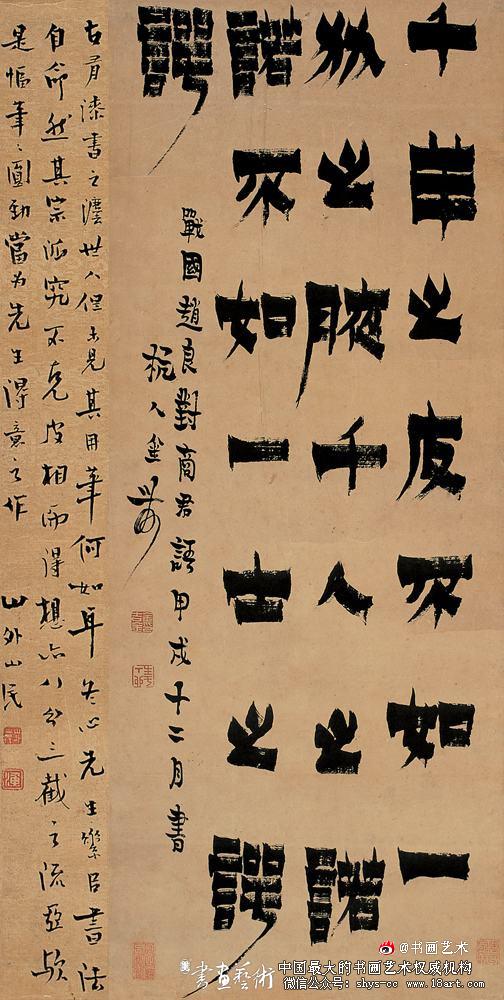 千羊之皮不如一
狐之腋千人之諾
諾不如一士之諤
諤
戰國趙良對商君語甲戌十二月書
杭人金農
古有漆書之灋世人但未見其用筆何如耳冬心先生書法
自命然其宗派究不克皮相而得想亦八分三截之流亞歟
是幅筆〻圓勁當为先生得意之作
山外山民
書畫藝術
@书画艺术
中国最大的书画艺术权威机构
微信公众号：shys-cc 网址：www.18art.com